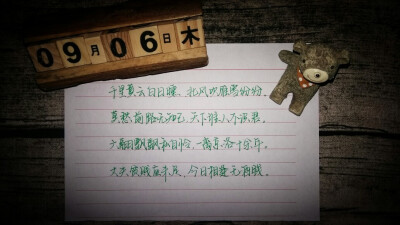 09月06日木
千里黄云白日曛,北风吹雁雪纷纷。
莫愁前路无知己,天下谁人不识君。
六翮飘飖私自怜,一离京洛十余年。
丈夫贫贱应未足,今日相逢无酒钱。